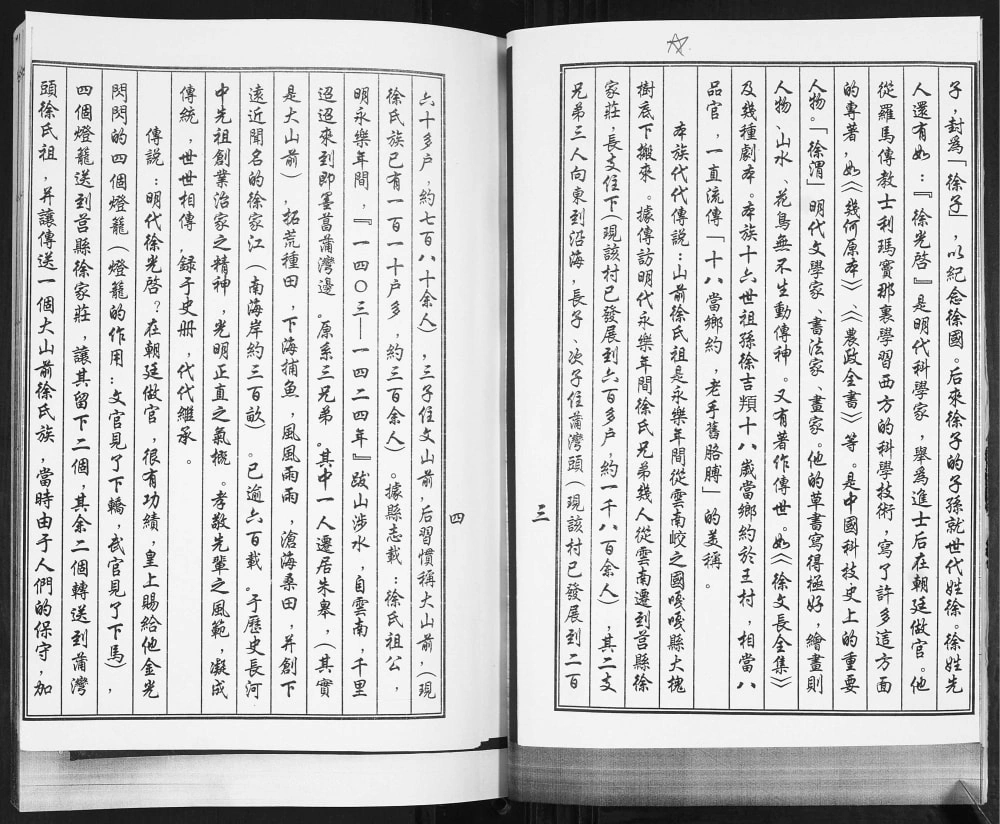 子，封爲「徐子」，以紀念徐國。后來徐子的子孫就世代姓徐。徐姓先
人還有如：『徐光啓』是明代科學家，舉爲進士后在朝廷做官。他
從羅馬傳教士利瑪竇那裏學習西方的科學技術，寫了許多這方面
的專著，如《幾何原本》《農政全書》等。是中國科技史上的重要
人物。「徐渭」明代文學家、書法家、畫家。他的草書寫得極好，繪畫則
人物、山水、花鳥無不生動傳神。又有著作傳世。如《徐文長全集》
及幾種劇本。本族十六世祖孫徐吉頖十八歲當鄉約於王村，相當八
品官，一直流傳「十八當鄉約，老手舊胳膊」的美稱。
本族代代傳說：山前徐氏祖是永樂年間從雲南峧之國嘎嘎縣大槐
樹底下搬來。據傳訪明代永樂年間徐氏兄弟幾人從雲南遷到莒縣徐
家莊，長支住下（現該村已發展到六百多户，約一千八百余人），其二支
兄弟三人向東到沿海，長子、次子住蒲灣頭（現該村已發展到二百
三
六十多户，約七百八十余人），三子住文山前，后習慣稱大山前，（現
徐氏族已有一百一十户多，約三百余人）。據縣志載：徐氏祖公，
明永樂年間，『一四〇三—一四二四年』跋山涉水，自雲南，千里
迢迢來到即墨菖蒲灣邊。原系三兄弟。其中一人遷居朱皋，（其實
是大山前），拓荒種田，下海捕魚，風風雨雨，滄海桑田，并創下
遠近聞名的徐家江（南海岸約三百畝）。已逾六百載。于歷史長河
中先祖創業治家之精神，光明正直之氣概。孝敬先輩之風範，凝成
傳統，世世相傳，録于史册，代代繼承。
傳說：明代徐光啓？在朝廷做官，很有功績，皇上賜給他金光
閃閃的四個燈籠（燈籠的作用：文官見了下轎，武官見了下馬），
四個燈籠送到莒縣徐家莊，讓其留下二個，其余二個轉送到蒲灣
頭徐氏祖，并讓傳送一個大山前徐氏族，當時由于人們的保守，加
四